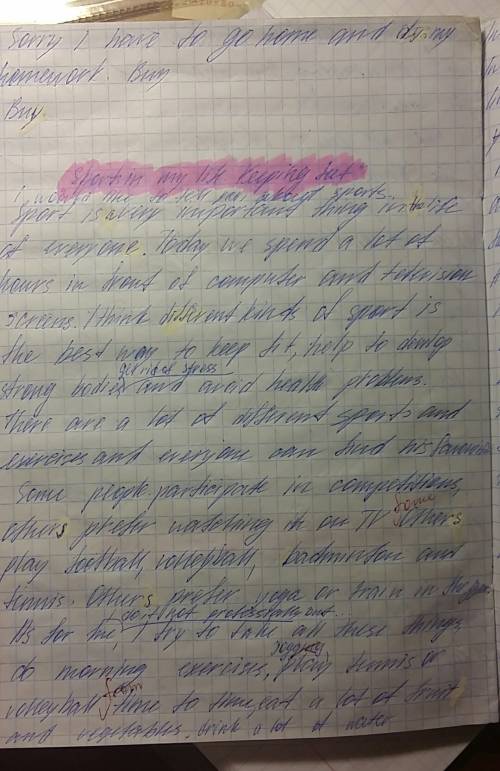 Sorry I have to go home and do my
homework. Buy
Buy.
Sport in my life keeping feet
I would like to tell you about sports.
Sport is a very important thing in the life
of everyone. Today we spend a lot of
hours in front of computer and television
screens. I think different kinds of sport is
the best way to keep fit, help to develop
get rid of stress
strong bodies and avoid health problems.
There are a lot of different sports and
exercises and everyone can find his favourite
Some people participate in competitions,
others prefer watching it on TV Some
others
play football, volleyball, badminton and
tennis. Others prefer yoga or train in the gym.
not professional
As for me, I try to take all these things,
jogging
do morning exercises, play tennis or
from
volleyball time to time, eat a lot of fruit
and vegetables, drink a lot of water